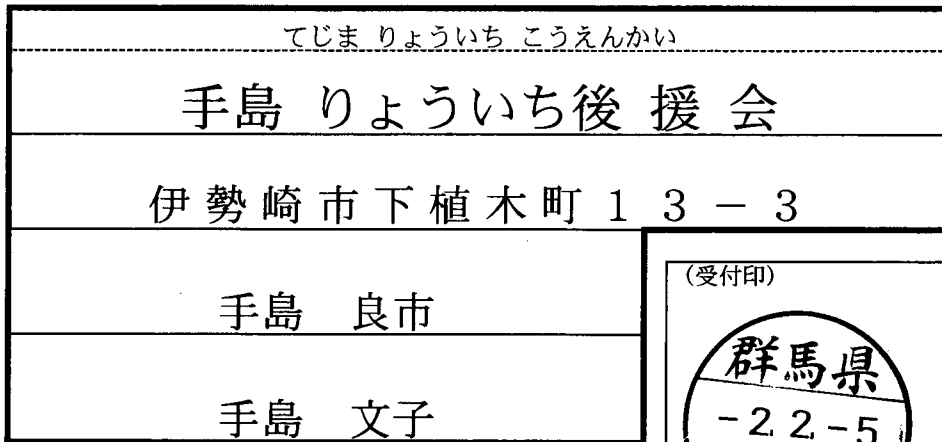 てじま りょういち こうえんかい
手島 りょういち後援会
伊勢崎市下植木町13-3
手島 良市
手島 文子
(受付印)
群馬県
-2.2.-5